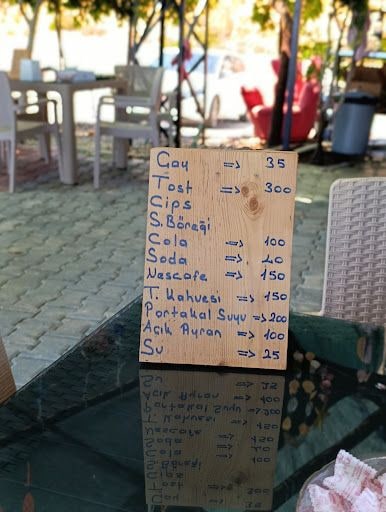 Çay => 35
Tost => 300
Cips
S. Böreği
Cola => 100
Soda => 40
Nescafe => 150
T. Kahvesi => 150
Portakal Suyu => 200
Açık Ayran => 100
Su => 25